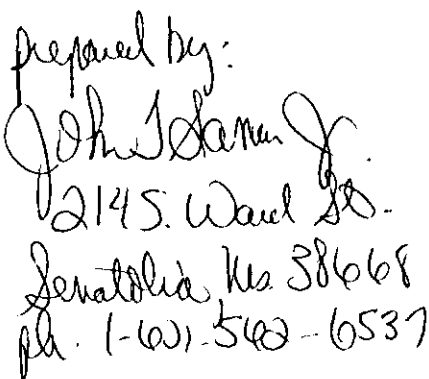 prepared by:
John T Jr.
214 S. Ward St.
Senatobia Ms. 38668
ph. 1-601-562-6537